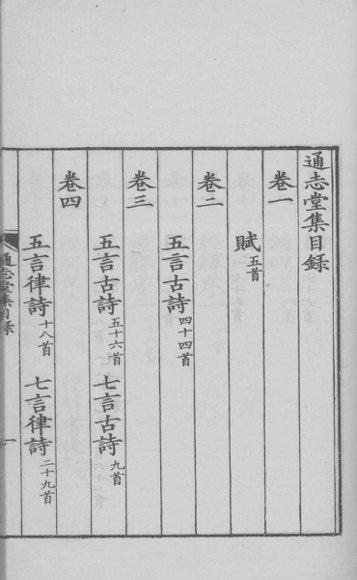 通志堂集目録
卷一
賦五首
卷二
五言古詩四十四首
卷三
五言古詩五十六首 七言古詩九首
卷四
五言律詩十八首 七言律詩二十九首
通志堂集目録 一